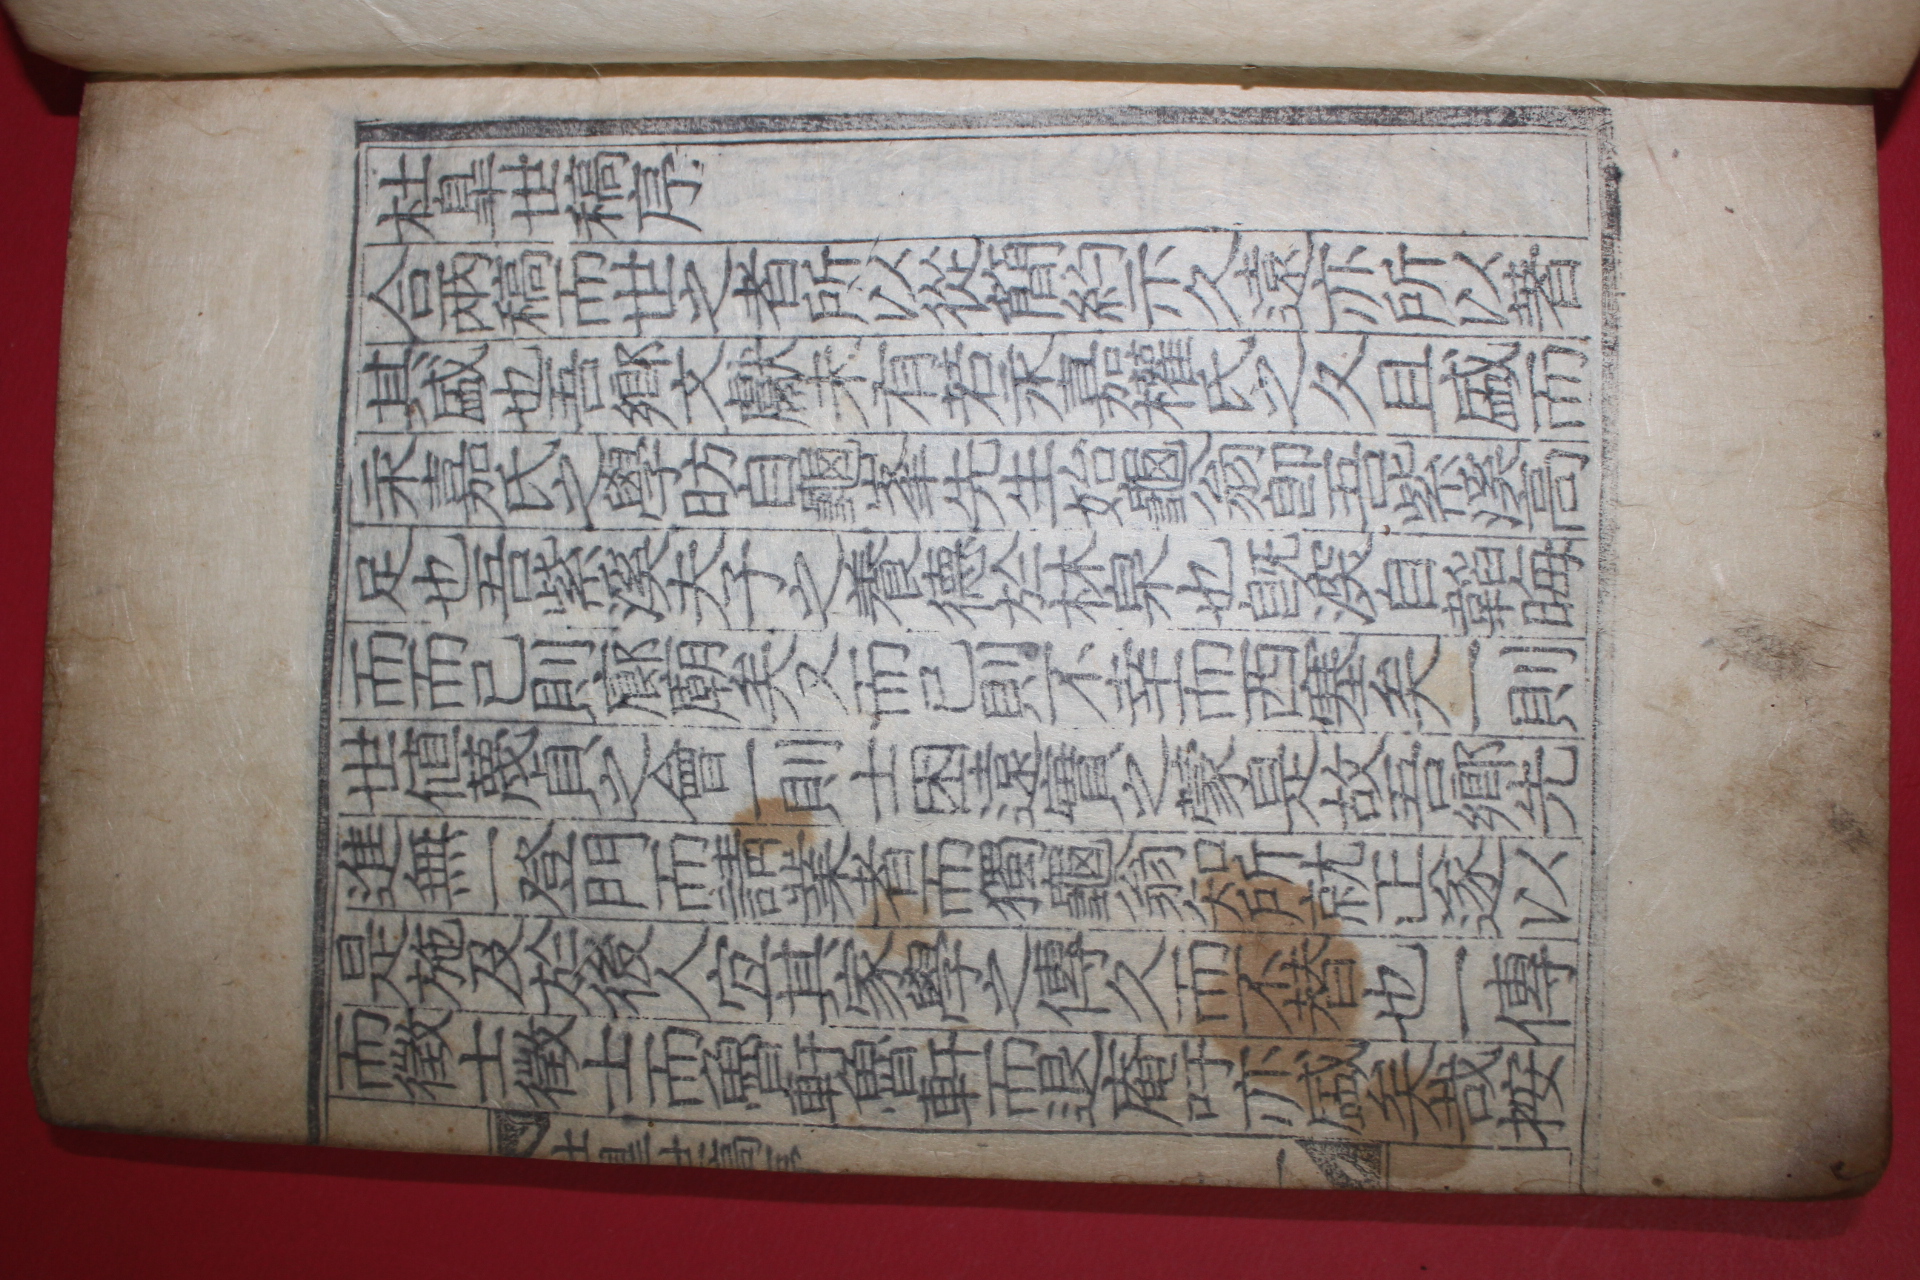 杜臯世稿序
合兩稿而世之者所以從簡約示久遠亦所以著
其盛也吾鄉文獻未有若永嘉權氏之久且盛而
永嘉氏之學昉自龜峯先生始龜翁卽吾紫溪高
足也吾紫溪夫子之養德於林泉也旣深自韜晦
而而已則廊廟矣又而已則不幸而西塞矣一則
世値蔑貞之會一則士困遠實之蒙是故吾鄉先
進無一登門而請業者而獨龜翁知所就正遂以
是施及於後人宜其家學之傳久而不替也一傳
而徵士徵士而魯軒魯軒而退庵吁亦盛矣哉按
杜臯世稿序
一